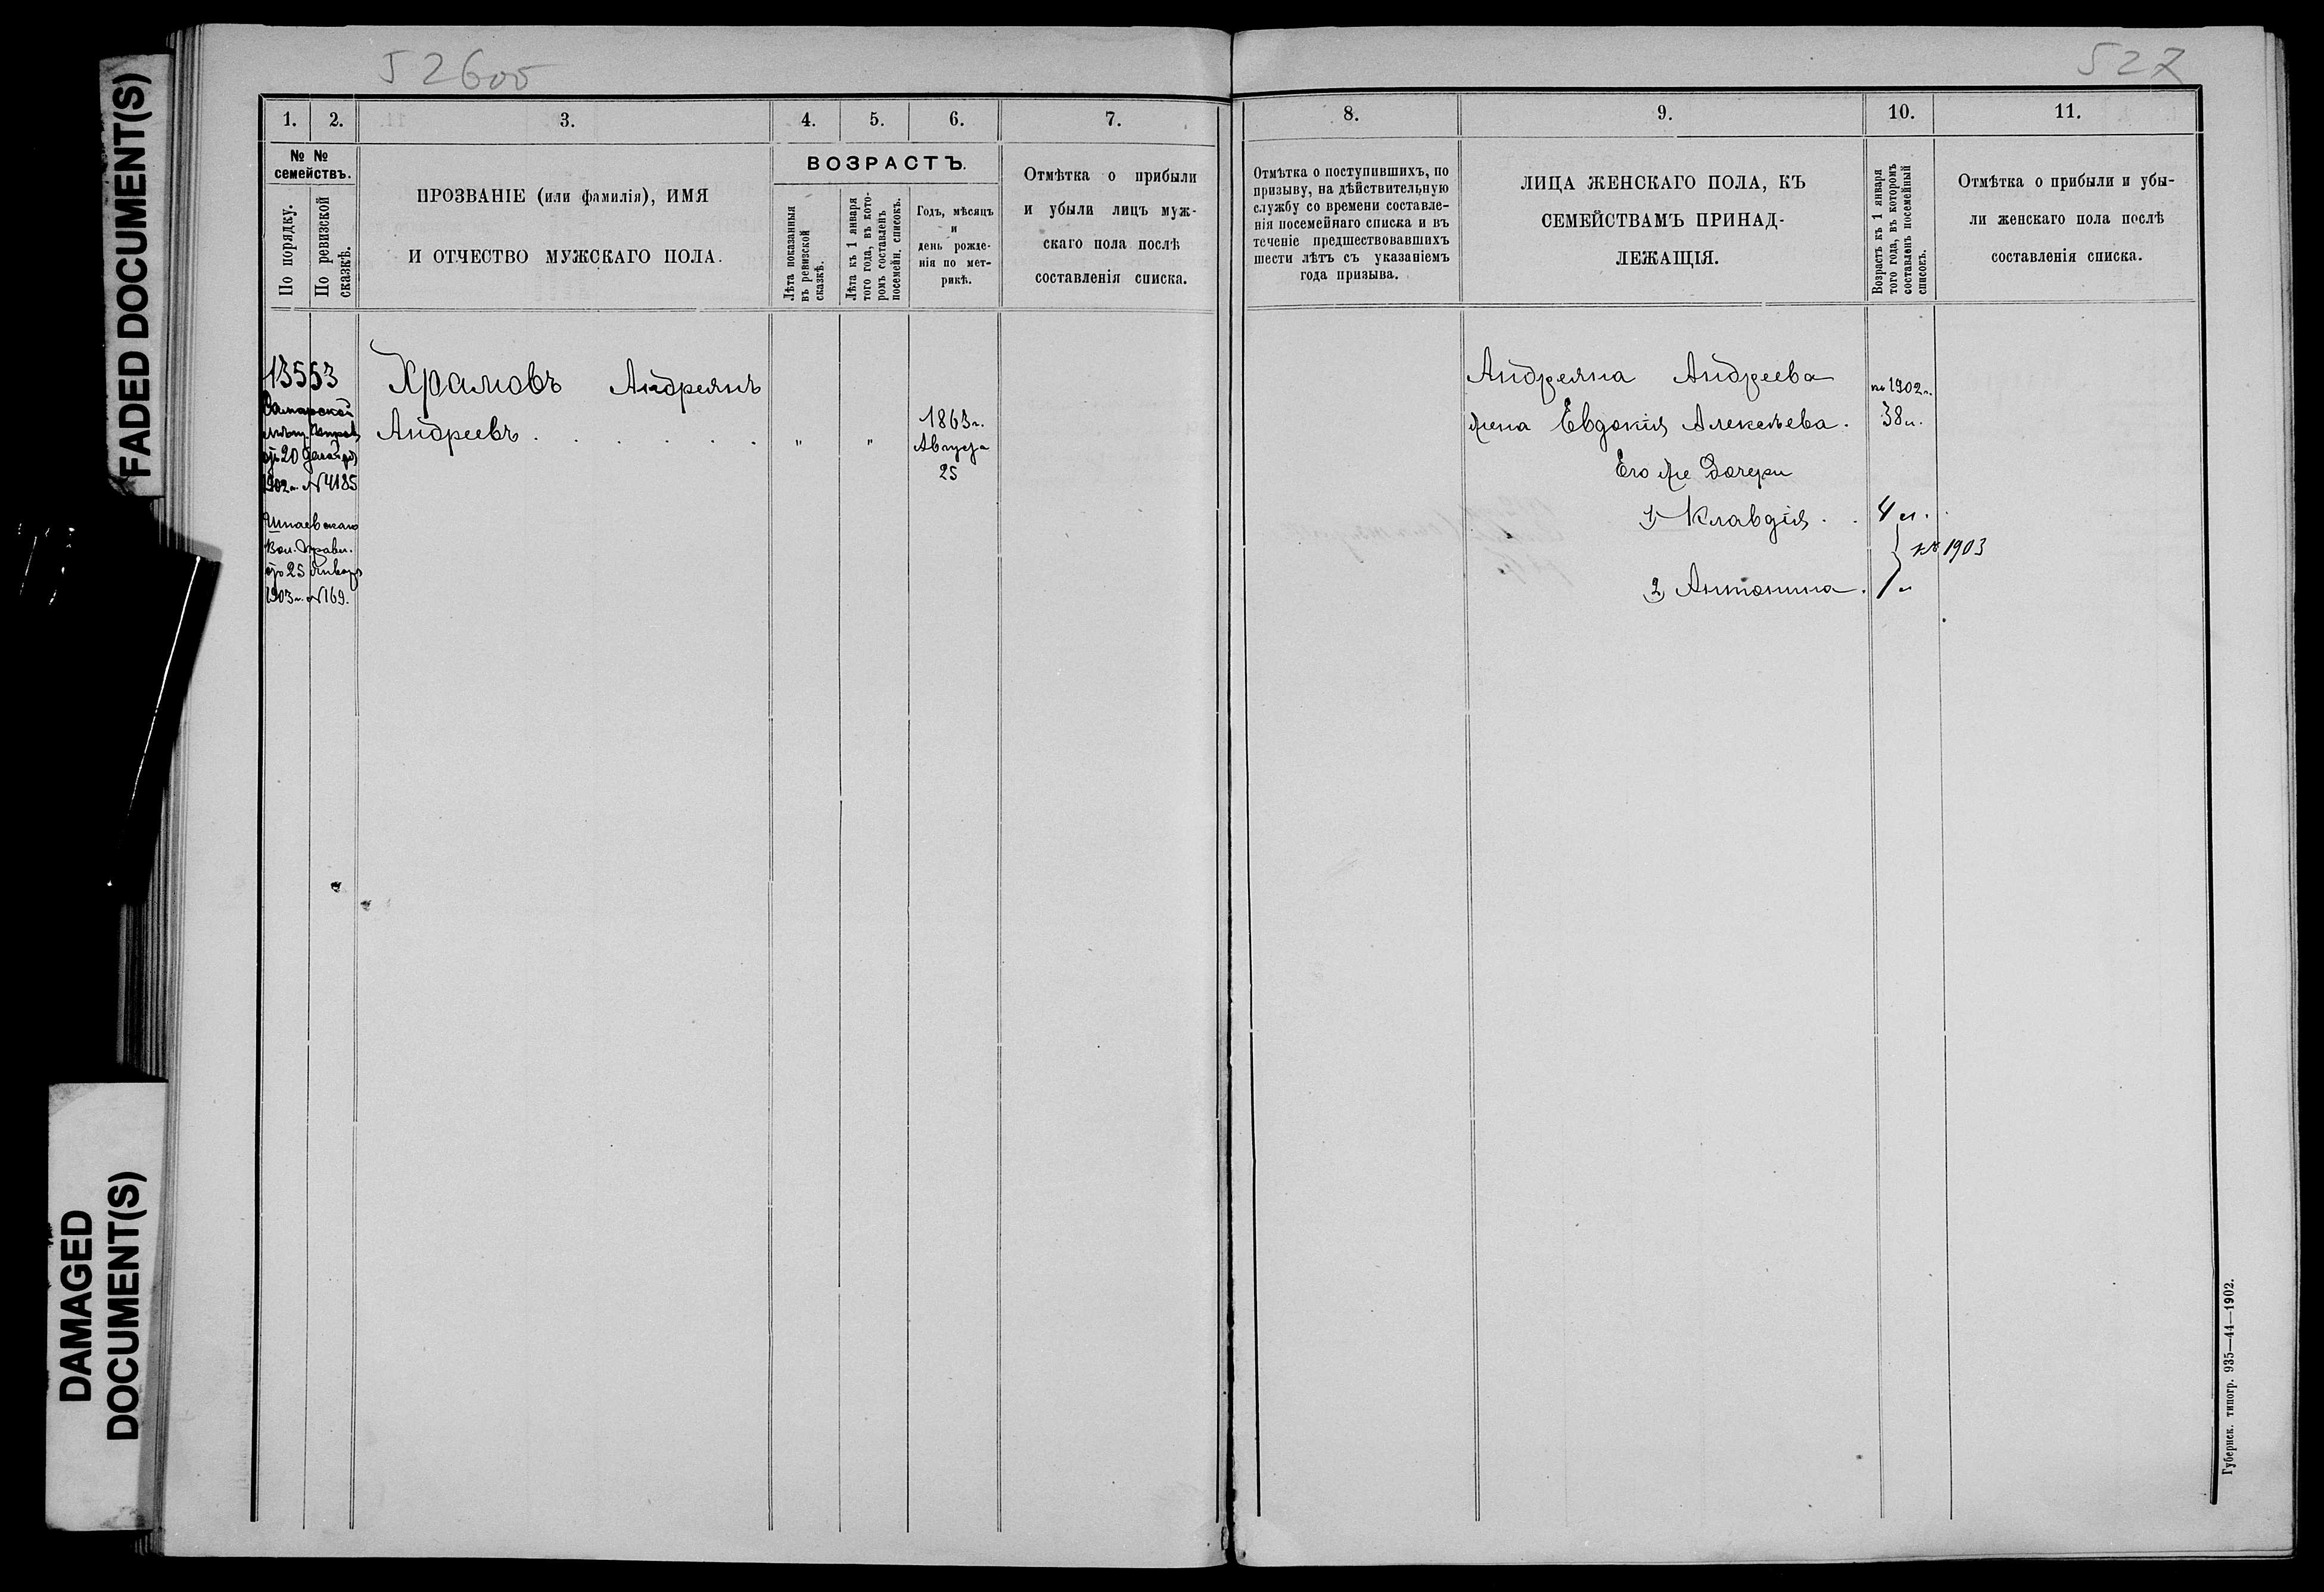 52600
527
FADED DOCUMENT(S)
DAMAGED
DOCUMENT(S)
1.
2.
3.
4.
5.
6.
7.
№ №
семействъ.
По порядку.
По ревизской
сказкѣ.
ПРОЗВАНІЕ (или фамилія), ИМЯ
И ОТЧЕСТВО МУЖСКАГО ПОЛА.
ВОЗРАСТЪ.
Лѣта показанныя
въ ревизской
сказкѣ.
Лѣта къ 1 января
того года, въ кото-
ромъ составленъ
посемейн. списокъ.
Годъ, мѣсяцъ
и
день рожде-
нія по мет-
рикѣ.
Отмѣтка о прибыли
и убыли лицъ муж-
скаго пола послѣ
составленія списка.
13553
Самарской
мѣщ. Управ
1902 г. №4185
Вол. Правл.
от 25 Января
1903 г. №169.
Храмовъ Андреянъ
Андреевъ . . . . . . " "
1863 г.
Августа
25
8.
9.
10.
11.
Отмѣтка о поступившихъ, по
призыву, на дѣйствительную
службу со времени составле-
нія посемейнаго списка и въ
теченіе предшествовавшихъ
шести лѣтъ съ указаніемъ
года призыва.
ЛИЦА ЖЕНСКАГО ПОЛА, КЪ
СЕМЕЙСТВАМЪ ПРИНАД-
ЛЕЖАЩІЯ.
Возрастъ къ 1 января
того года, въ которомъ
составленъ посемейный
списокъ.
Отмѣтка о прибыли и убы-
ли женскаго пола послѣ
составленія списка.
Андреяна Андреева
жена Евдокія Алексѣева.
на 1902 г.
38 л.
Его же дочери
1) Клавдія . . 4 л.
къ 1903
2) Антонина . 1 "
Губернск. типогр. 935—44—1902.